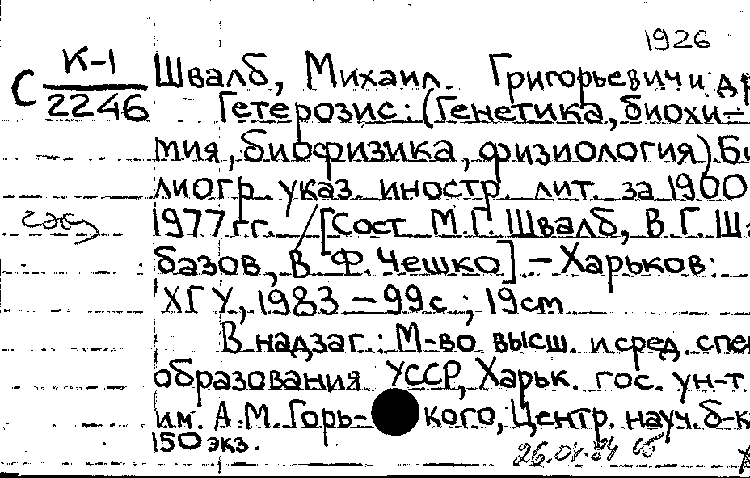 1926
С К-1
2246
Швалб, Михаил Григорьевич и др
Гетерозис: (Генетика, биохи-
мия, биофизика, физиология). Би
лиогр. указ. иностр. лит. за 1900
1977 гг. [Сост. М.Г. Швалб, В.Г. Ша
базов, В. Ф. Чешко] – Харьков:
ХГУ, 1983 – 99с ; 19cm
В надзаг.: М-во высш. и сред. спец
образования УССР, Харьк. гос. ун-т.
им. А.М. Горь- кого, Центр. науч. б-к
150 экз.